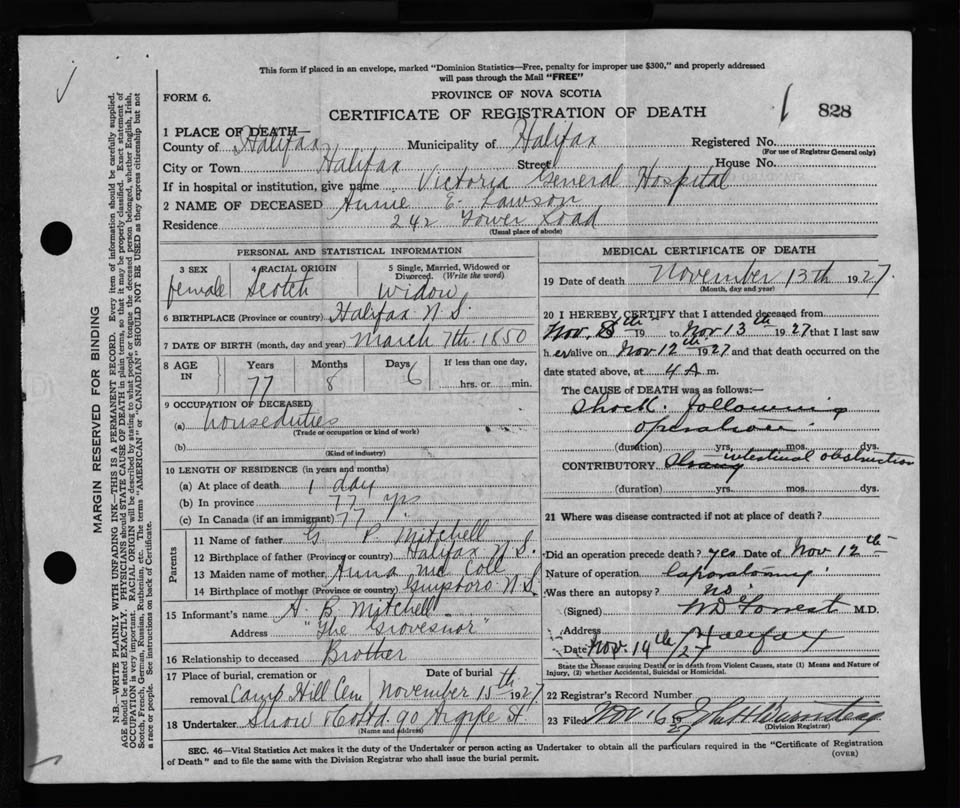 This form if placed in an envelope, marked "Dominion Statistics—Free, penalty for improper use $300," and properly addressed
will pass through the Mail "FREE"
FORM 6.
PROVINCE OF NOVA SCOTIA
CERTIFICATE OF REGISTRATION OF DEATH
828
1 PLACE OF DEATH—
County of Halifax Municipality of Halifax Registered No.
(For use of Registrar General only)
City or Town Halifax Street House No.
If in hospital or institution, give name Victoria General Hospital
2 NAME OF DECEASED Annie E. Lawson
Residence 242 Tower Road
(Usual place of abode)
MARGIN RESERVED FOR BINDING
N.B.—WRITE PLAINLY WITH UNFADING INK—THIS IS A PERMANENT RECORD. Every item of information should be carefully supplied.
AGE should be stated EXACTLY. PHYSICIANS should STATE CAUSE OF DEATH in plain terms, so that it may be properly classified. Exact statement of
OCCUPATION is very important. RACIAL ORIGIN will be described by stating to what people or tongue the deceased person belonged, whether English, Irish,
Scotch, French, German, Russian, Ruthenian, etc. The terms "AMERICAN" or "CANADIAN" SHOULD NOT BE USED as they express citizenship but not
a race or people. See instructions on back of Certificate.
PERSONAL AND STATISTICAL INFORMATION
3 SEX
female
4 RACIAL ORIGIN
Scotch
5 Single, Married, Widowed or
Divorced. (Write the word)
Widow
6 BIRTHPLACE (Province or country) Halifax N.S.
7 DATE OF BIRTH (month, day and year) March 7th. 1850
8 AGE IN
Years Months Days If less than one day,
77 8 6 hrs. or min.
9 OCCUPATION OF DECEASED
(a) houseduties
(Trade or occupation or kind of work)
(b)
(Kind of industry)
10 LENGTH OF RESIDENCE (in years and months)
(a) At place of death 1 day
(b) In province 77 yrs
(c) In Canada (if an immigrant) 77
Parents
11 Name of father G. P. Mitchell
12 Birthplace of father (Province or country) Halifax N.S.
13 Maiden name of mother Anna Mc Coll
14 Birthplace of mother (Province or country) Guysboro N.S.
15 Informant's name A. B. Mitchell
Address "The Grovesnor"
16 Relationship to deceased Brother
17 Place of burial, cremation or Date of burial
removal Camp Hill Cem November 15th 1927
18 Undertaker Snow & Co Ltd. 90 Argyle St.
(Name and address)
MEDICAL CERTIFICATE OF DEATH
19 Date of death November 13th 1927
(Month, day and year)
20 I HEREBY CERTIFY that I attended deceased from
Nov. 8th 19 to Nov 13th 1927 that I last saw
h er alive on Nov 12th 1927 and that death occurred on the
date stated above, at 4 A m.
The CAUSE of DEATH was as follows:
Shock following
operation
(duration) yrs. mos. dys.
CONTRIBUTORY intestinal obstruction
(duration) yrs. mos. dys.
21 Where was disease contracted if not at place of death?
Did an operation precede death? yes Date of Nov 12th
Nature of operation laparatomy
Was there an autopsy? no
(Signed) M.D.
Address Halifax
Date Nov. 14th /27
State the Disease causing Death, or in death from Violent Causes, state (1) Means and Nature of
Injury, (2) whether Accidental, Suicidal or Homicidal.
22 Registrar's Record Number
23 Filed Nov 16 1927
(Division Registrar)
SEC. 46—Vital Statistics Act makes it the duty of the Undertaker or person acting as Undertaker to obtain all the particulars required in the "Certificate of Registration
of Death" and to file the same with the Division Registrar who shall issue the burial permit.
(OVER)